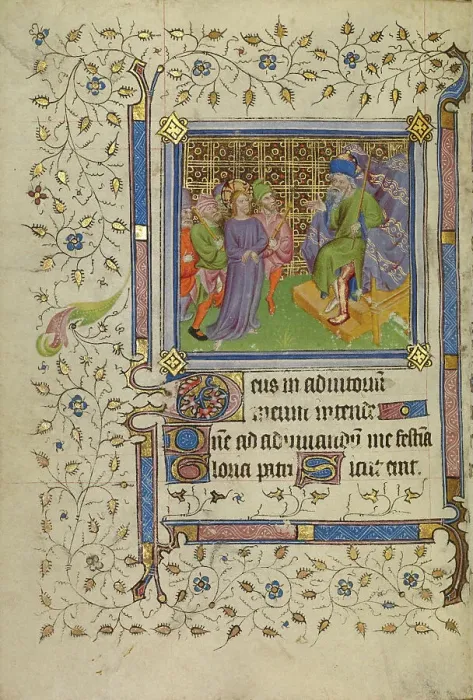 Deus in adiutoriū
meum intende
Dñe ad adiuuandū me festina
Gloria patri Sicut erat.